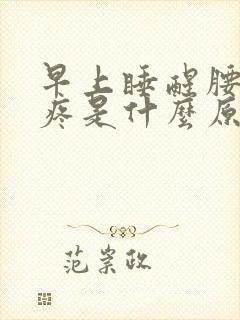 早上睡醒腰
疼是什麼原
范崇政